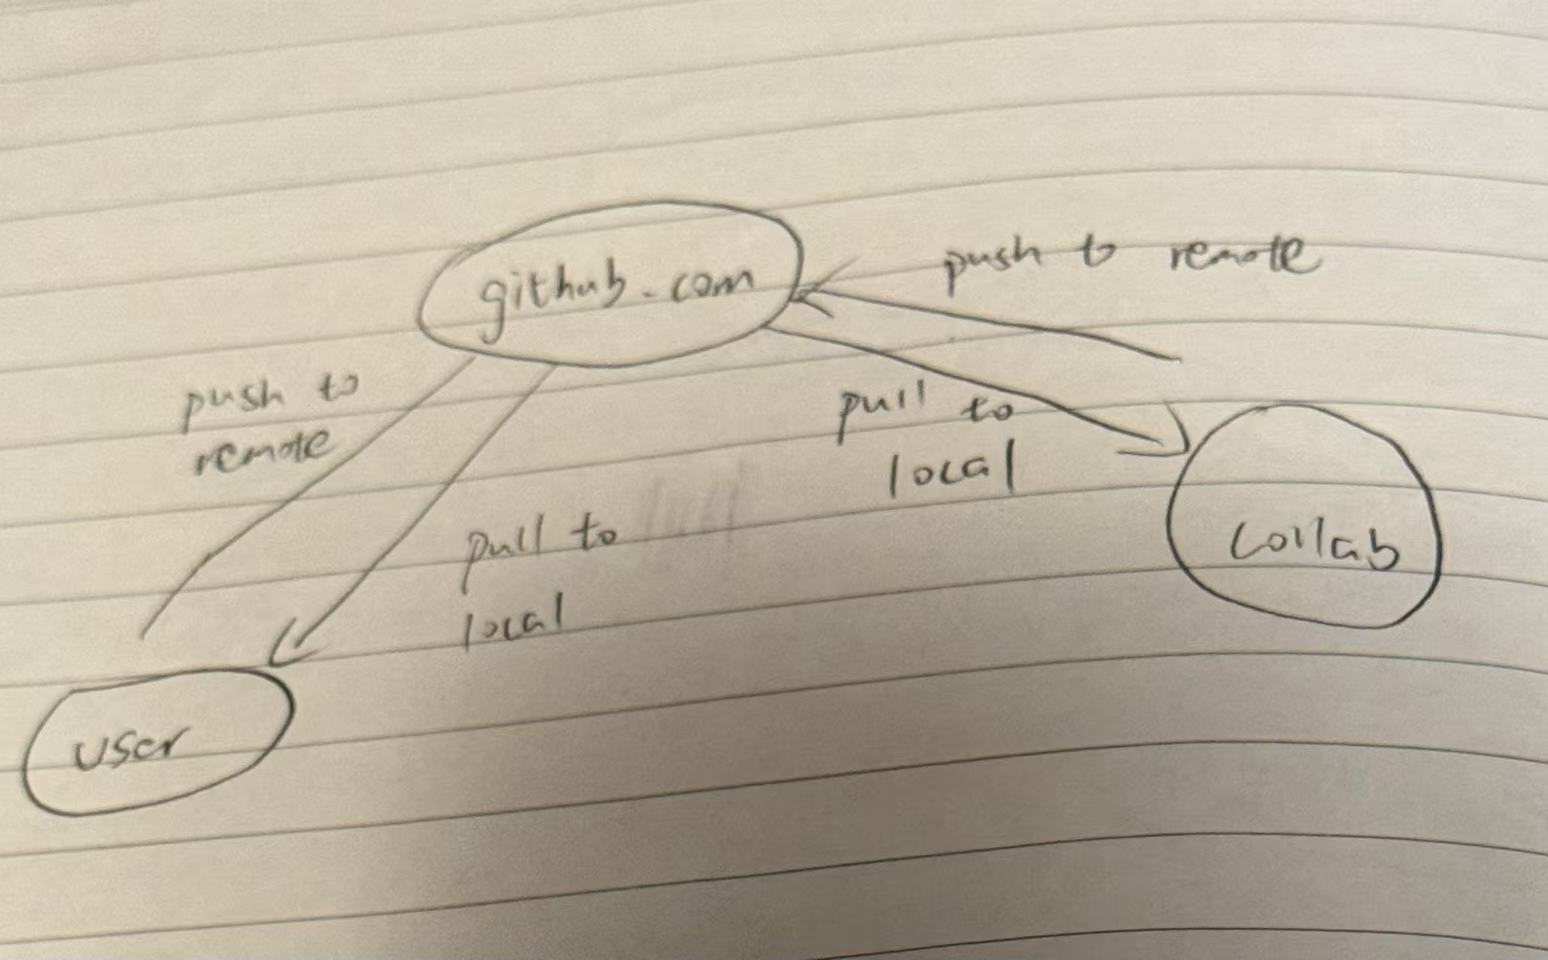 github.com
push to remote
push to
remote
pull to
local
pull to
local
collab
user